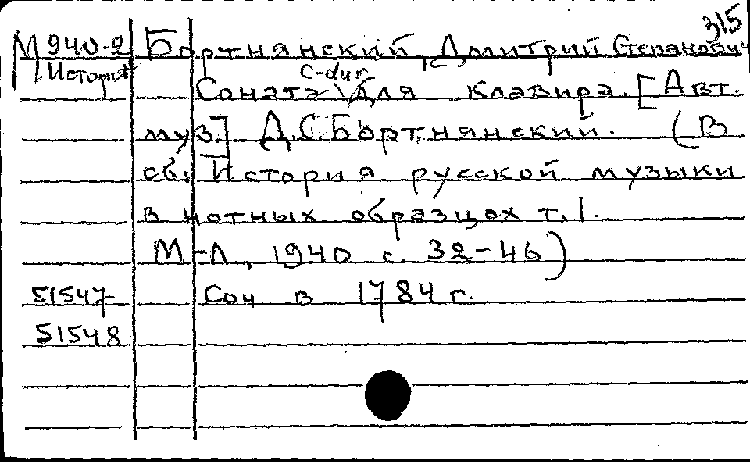 315
М 940-2 Бортнянский, Дмитрий Степанович
История
C-dur
Соната для клавира. [Авт.
муз.] Д.С. Бортнянский. (В
сб. История русской музыки
в нотных образцах т. 1.
М-Л, 1940 с. 32-46)
51547- Соч в 1784 г.
51548